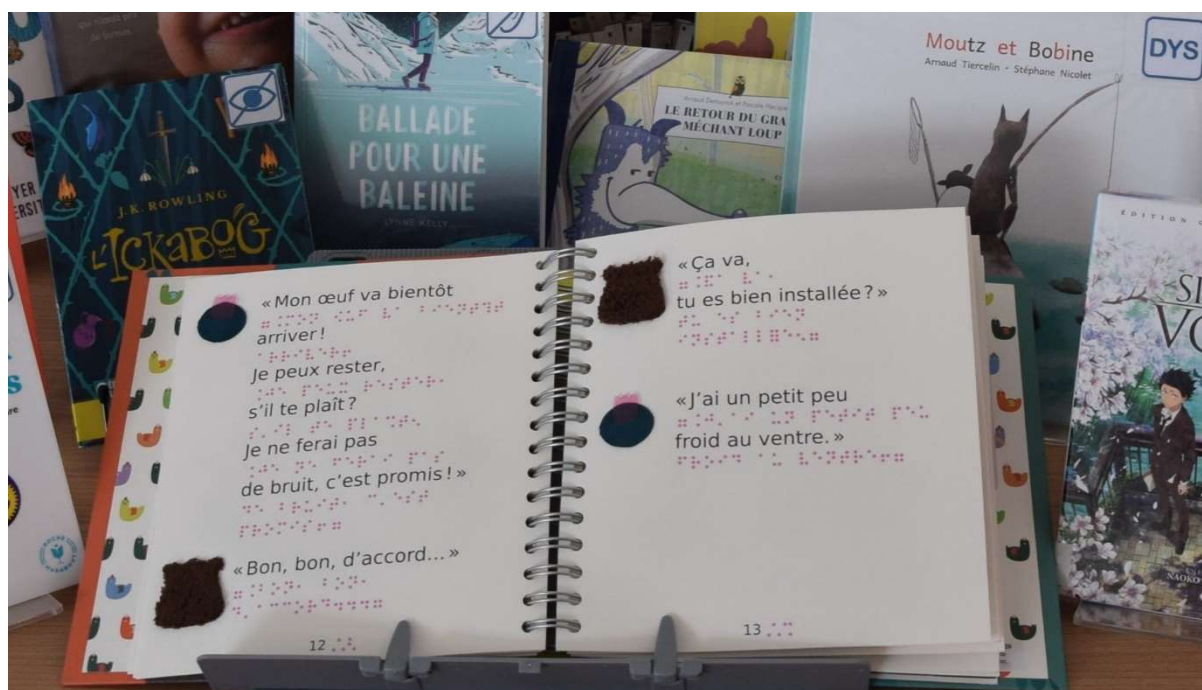 que n'aurait pris
de formes.
BALLADE
POUR UNE
BALEINE
LYNNE KELLY
J.K. ROWLING
L'ICKABOG
LE RETOUR DU GRA
MÉCHANT LOUP
Moutz et Bobine
Arnaud Tiercelin - Stéphane Nicolet
DYS
YER
ERSIT
EDITION
NAOKO
«Mon œuf va bientôt
arriver!
Je peux rester,
s'il te plaît?
Je ne ferai pas
de bruit, c'est promis!»
«Bon, bon, d'accord...»
12
«Ça va,
tu es bien installée?»
«J'ai un petit peu
froid au ventre.»
13